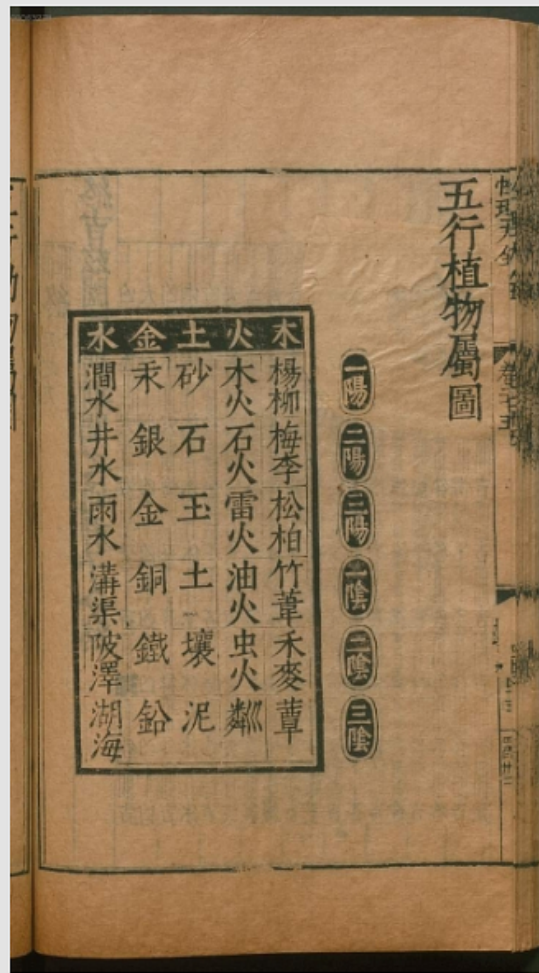 五行植物屬圖
一陽 二陽 三陽 一陰 二陰 三陰
木 火 土 金 水
楊柳 梅李 松柏 竹葦 禾麥 蕈
木火 石火 雷火 油火 虫火 粼
砂 石 玉 土 壤 泥
汞 銀 金 銅 鐵 鉛
澗水 井水 雨水 溝渠 陂澤 湖海